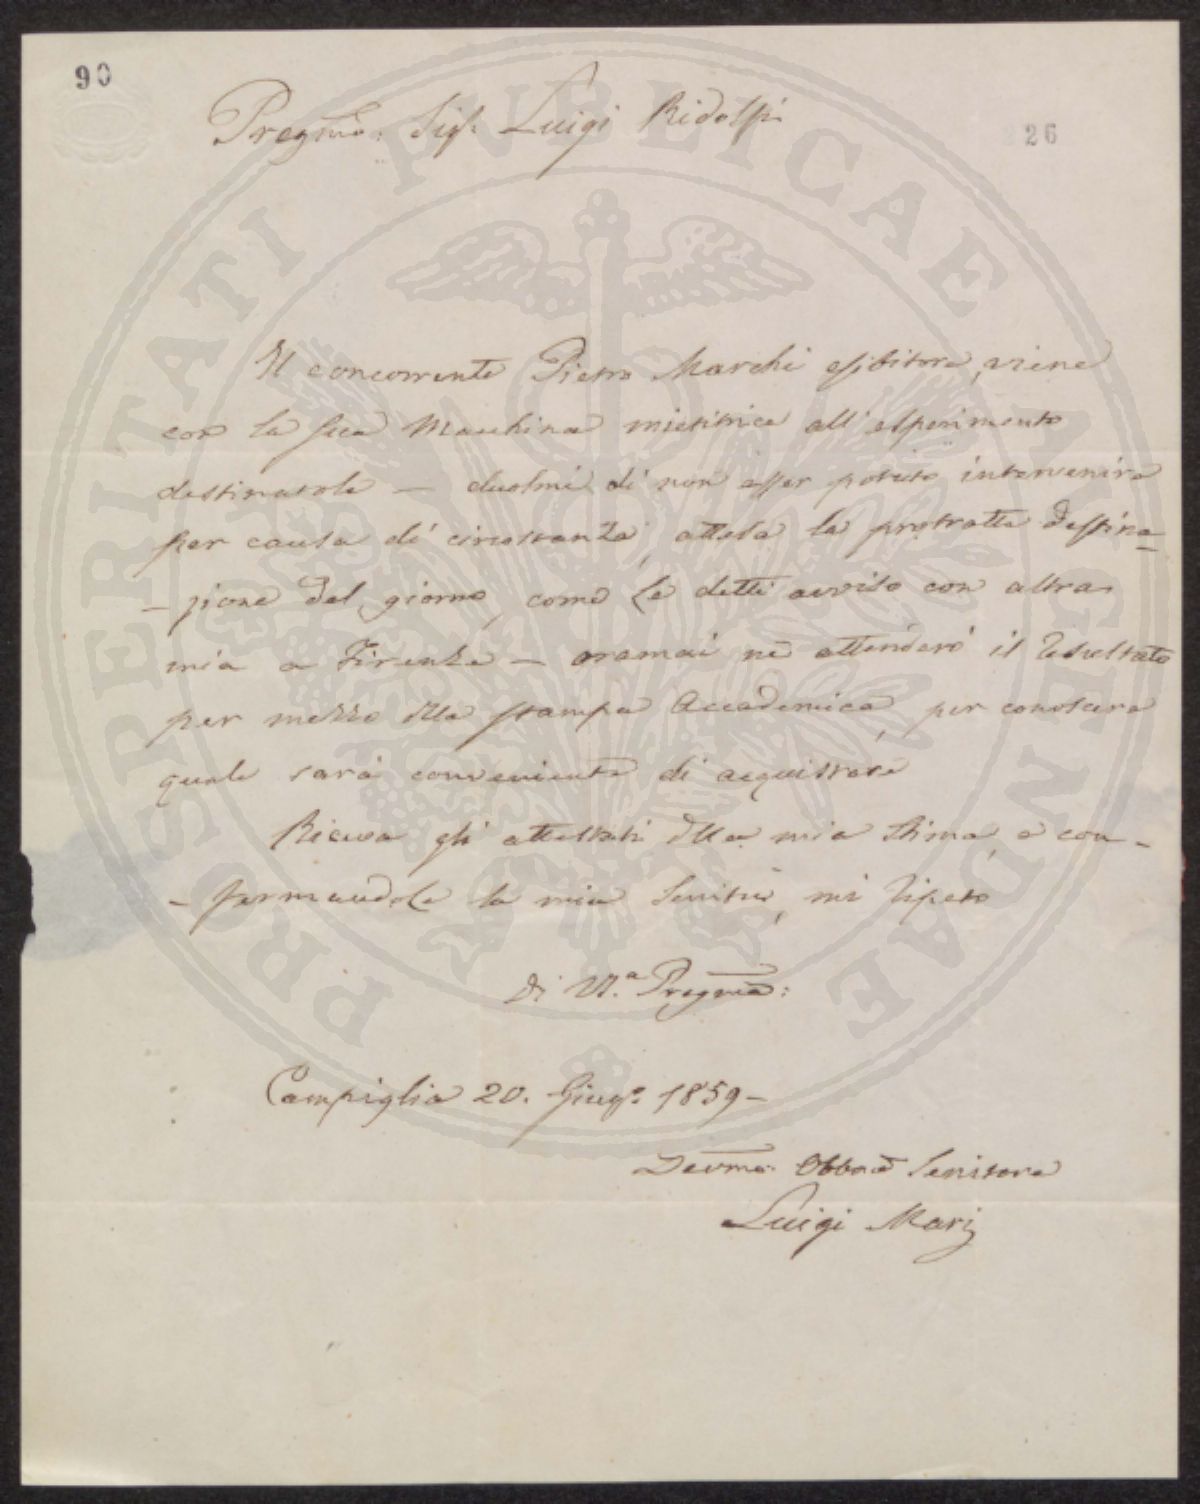 90
Pregmo: Sigr. Luigi Ridolfi
226
Il concorrente Pietro Marchi esibitore, viene
con la sua Macchina mietitrice all'esperimento
destinatole — duolmi di non esser potuto intervenire
per causa di circostanza, attesa la protratta destina-
-zione del giorno, come Le detti avviso con altra
mia a Firenze — oramai ne attenderò il resultato
per mezzo della stampa Accademica, per conoscere
quale sarà conveniente di acquistare
Riceva gli attestati della mia stima, e con-
-fermandole la mia Servitù, mi ripeto
Di Va. Pregma:
Campiglia 20. Giugo. 1859 —
Devmo: Obbmo Servitore
Luigi Marj
PROSPERITATI PUBLICAE AUGENDAE